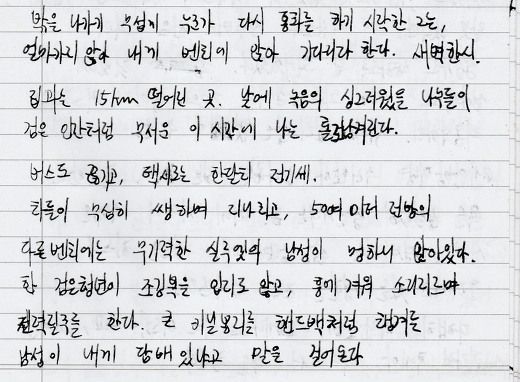 밖을 나가게 무섭게 누군가 다시 통화를 하기 시작한 그는,
얼마가지 않아 내게 벤치에 앉아 기다리다 한다. 새벽한시.
집과는 15km 떨어진 곳. 낮에 녹음의 싱그러웠을 나무들이
검은 인간처럼 무서운 이 시간에 나는 홀로남겨진다.
버스도 끊기고, 택시로는 한달치 전기세.
차들이 무심히 쌩하며 지나치고, 50여 미터 전방의
다른벤치에는 무기력한 실루엣의 남성이 멍하니 앉아있다.
한 검은형연이 조깅복을 입지도 않고, 흥에 겨워 소리지르며
전력질주를 한다. 큰 비닐봉지를 핸드백처럼 한
남성이 내게 담배있냐고 말을 걸어온다